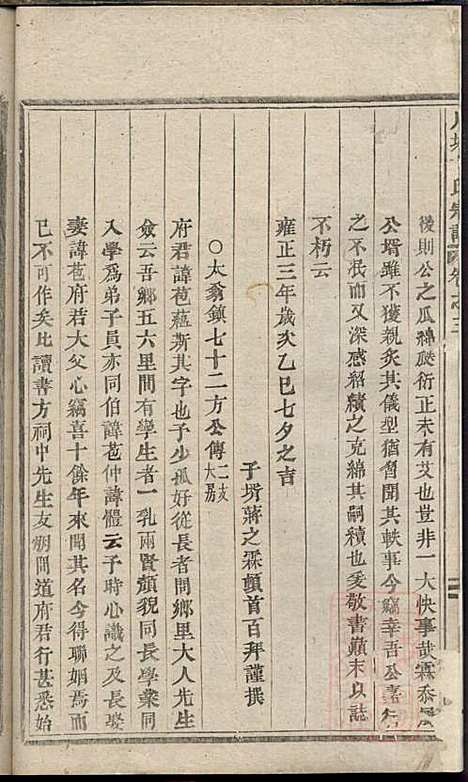 後則公之瓜綿蕨衍正未有艾也豈非一大快事哉霖忝
公壻雖不獲親炙其儀型猶習聞其軼事今竊幸吾公善行
之不泯而又深感紹續之克綿其嗣續也爰敬書巔末以誌
不朽云
雍正三年歲次乙巳七夕之吉
子壻蔣之霖頓首百拜謹撰
○太翁鎮七十二方公傳 二支大房
府君諱苞蘊斯其字也予少孤好從長者問鄉里大人先生
僉云吾鄉五六里間有孿生者一乳兩賢顏貌同長學業同
入學爲弟子員亦同伯諱苞仲諱體云予時心識之及長娶
妻諱苞府君大父心竊喜十餘年來聞其名今得聯姻焉而
已不可作矣比讀書方祠中先生友朋間道府君行甚悉始
氏宗譜 卷之三